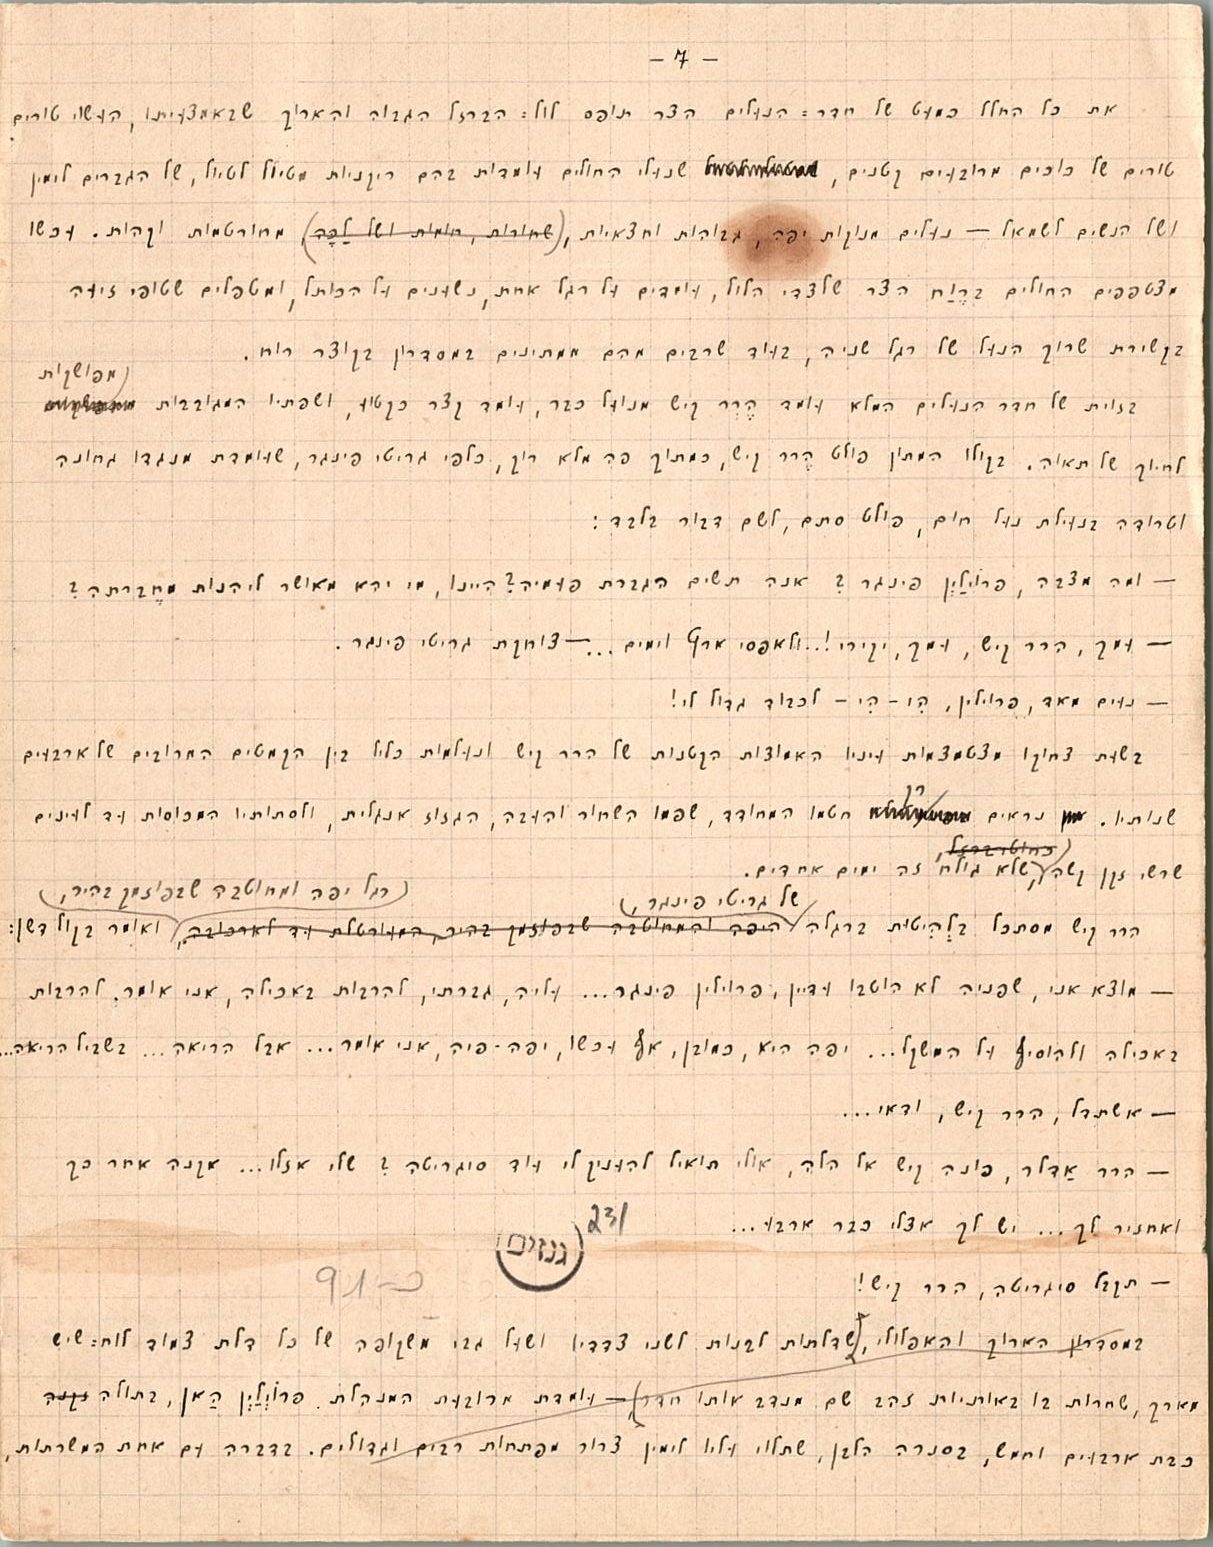 – 7 –
את כל החלל כמעט של חדר-הנעלים הצר תופס לול-הברזל הגבוה והארוך שבאמצעיתו, העשוי טורים
טורים של כוכים מרובעים קטנים, שנעלי החולים עומדות בהם ריקניות מטיול לטיול, של הגברים לימין
ושל הנשים לשמאל — נעלים מנוקות יפה, גבוהות וחצאיות, (שחורות, חומות ושל לַכָּה), מחורטמות וקהות. עכשו
מצטפפים החולים בָרֶוַח הצר שלצדי הלול, עומדים על רגל אחת, נשענים על הכותל, ומטפלים שטופי זיעה
בקשירת שרוך הנעל של רגל שניה, בעוד שרבים מהם ממתינים במסדרון בקוצר רוח.
מפושקות
בזוית של חדר הנעלים המלא עומד הֶרְר קיש מנועל כבר, עומד קצר כקטוע, ושפתיו המגובבות
לחיוך של תאוה. בקולו המתון פולט הֶרר קיש, כמתוך פה מלא רוק, כלפי גריטי פינגר, שעומדת מנגדו גחונה
וטרודה בנעילת נעל חום, פולט סתם, לשם דבור בלבד:
— ומה מצבה, פרוֹילַיְן פינגר? אנה תשים הגברת פעמיה? היינו, מי יהא מאושר ליהנות מחֶברתה?
— עמך, הרר קיש, עמך, יקירי!.. ולאפסי ארץ וימים... — צוחקת גריטי פינגר.
— נעים מאד, פרוילין, הִי-הִי – לכבוד גדול לי!
בשעת צחוקו מצטמצמות עיניו האמוצות הקטנות של הרר קיש ונעלמות כליל בין הקמטים המרובים של ארבעים
רק
שנותיו. נראים חטמו המחודד, שפמו השחור והעבה, הגזוז אנגלית, ולסתותיו המכוסות עד לעינים
כחוטי-ברזל,
שרשי זקן קשה, שלא גולח זה ימים אחדים.
של גריטי פינגר, (רגל יפה ומחוטבה שבפוזמק בהיר,)
הרר קיש מסתכל בלְהִיטוּת ברגלה היפה והמחוטבה שבפוזמק בהיר, המעורטלת עד לארכובה, ואומר בקול דשן:
— מוצא אני, שפניה לא הוטבו עדיין, פרוילין פינגר... עליה, גברתי, להרבות באכילה, אני אומר. להרבות
באכילה ולהוסיף על המשקל... יפה היא, כמובן, אף עכשו, יפה-פיה, אני אומר... אבל הריאה... בשביל הריאה...
— אשתדל, הרר קיש, ודאי...
— הרר אַדלר, פונה קיש אל הלה, אולי תואיל להעניק לי עוד סיגריטה? שלי אזלו... אקנה אחר כך
ואחזיר לך... יש לך אצלי כבר ארבע...
231
גנזים
91-כ
— תקבל סיגריטה, הרר קיש!
במסדרון הארוך והאפלולי, (שדלתות לבנות לשני צדדיו ושעל גבי משקופה של כל דלת צמוד לוח-שיש
מארך, שחרות בו באותיות זהב שם מנדב אותו חדר) — עומדת מרובעת המנהלת פרוֹילַיְן הַאן, בתולה זקנה
כבת ארבעים וחמש, בסנרה הלבן, שתלוי עליו לימין צרור מפתחות רבים וגדולים. בדברה עם אחת המשרתות,